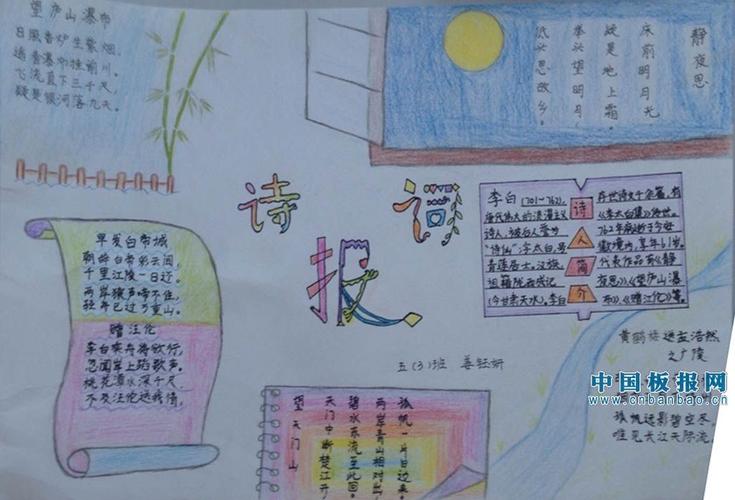 望庐山瀑布
日照香炉生紫烟,
遥看瀑布挂前川。
飞流直下三千尺,
疑是银河落九天。
静夜思
床前明月光
疑是地上霜。
举头望明月,
低头思故乡。
诗词报
早发白帝城
朝辞白帝彩云间,
千里江陵一日还。
两岸猿声啼不住,
轻舟已过万重山。
赠汪伦
李白乘舟将欲行,
忽闻岸上踏歌声。
桃花潭水深千尺,
不及汪伦送我情。
李白(701-762),
唐代伟大的浪漫主义
诗人,被后人誉为
“诗仙”,字太白,号
青莲居士。汉族,
祖籍陇西成记
(今甘肃天水)。李白
诗人简介
存世诗文千余篇,有
《李太白集》传世。
762年病逝于今安
徽境内,享年61岁。
代表作品有《静
夜思》《望庐山瀑
布》、《赠汪伦》等。
五(3)班 姜钰妍
望天门山
天门中断楚江开
碧水东流至此回。
两岸青山相对出
孤帆一片日边来。
黄鹤楼送孟浩然
之广陵
孤帆远影碧空尽
唯见长江天际流
中国板报网
www.cnbanbao.cn